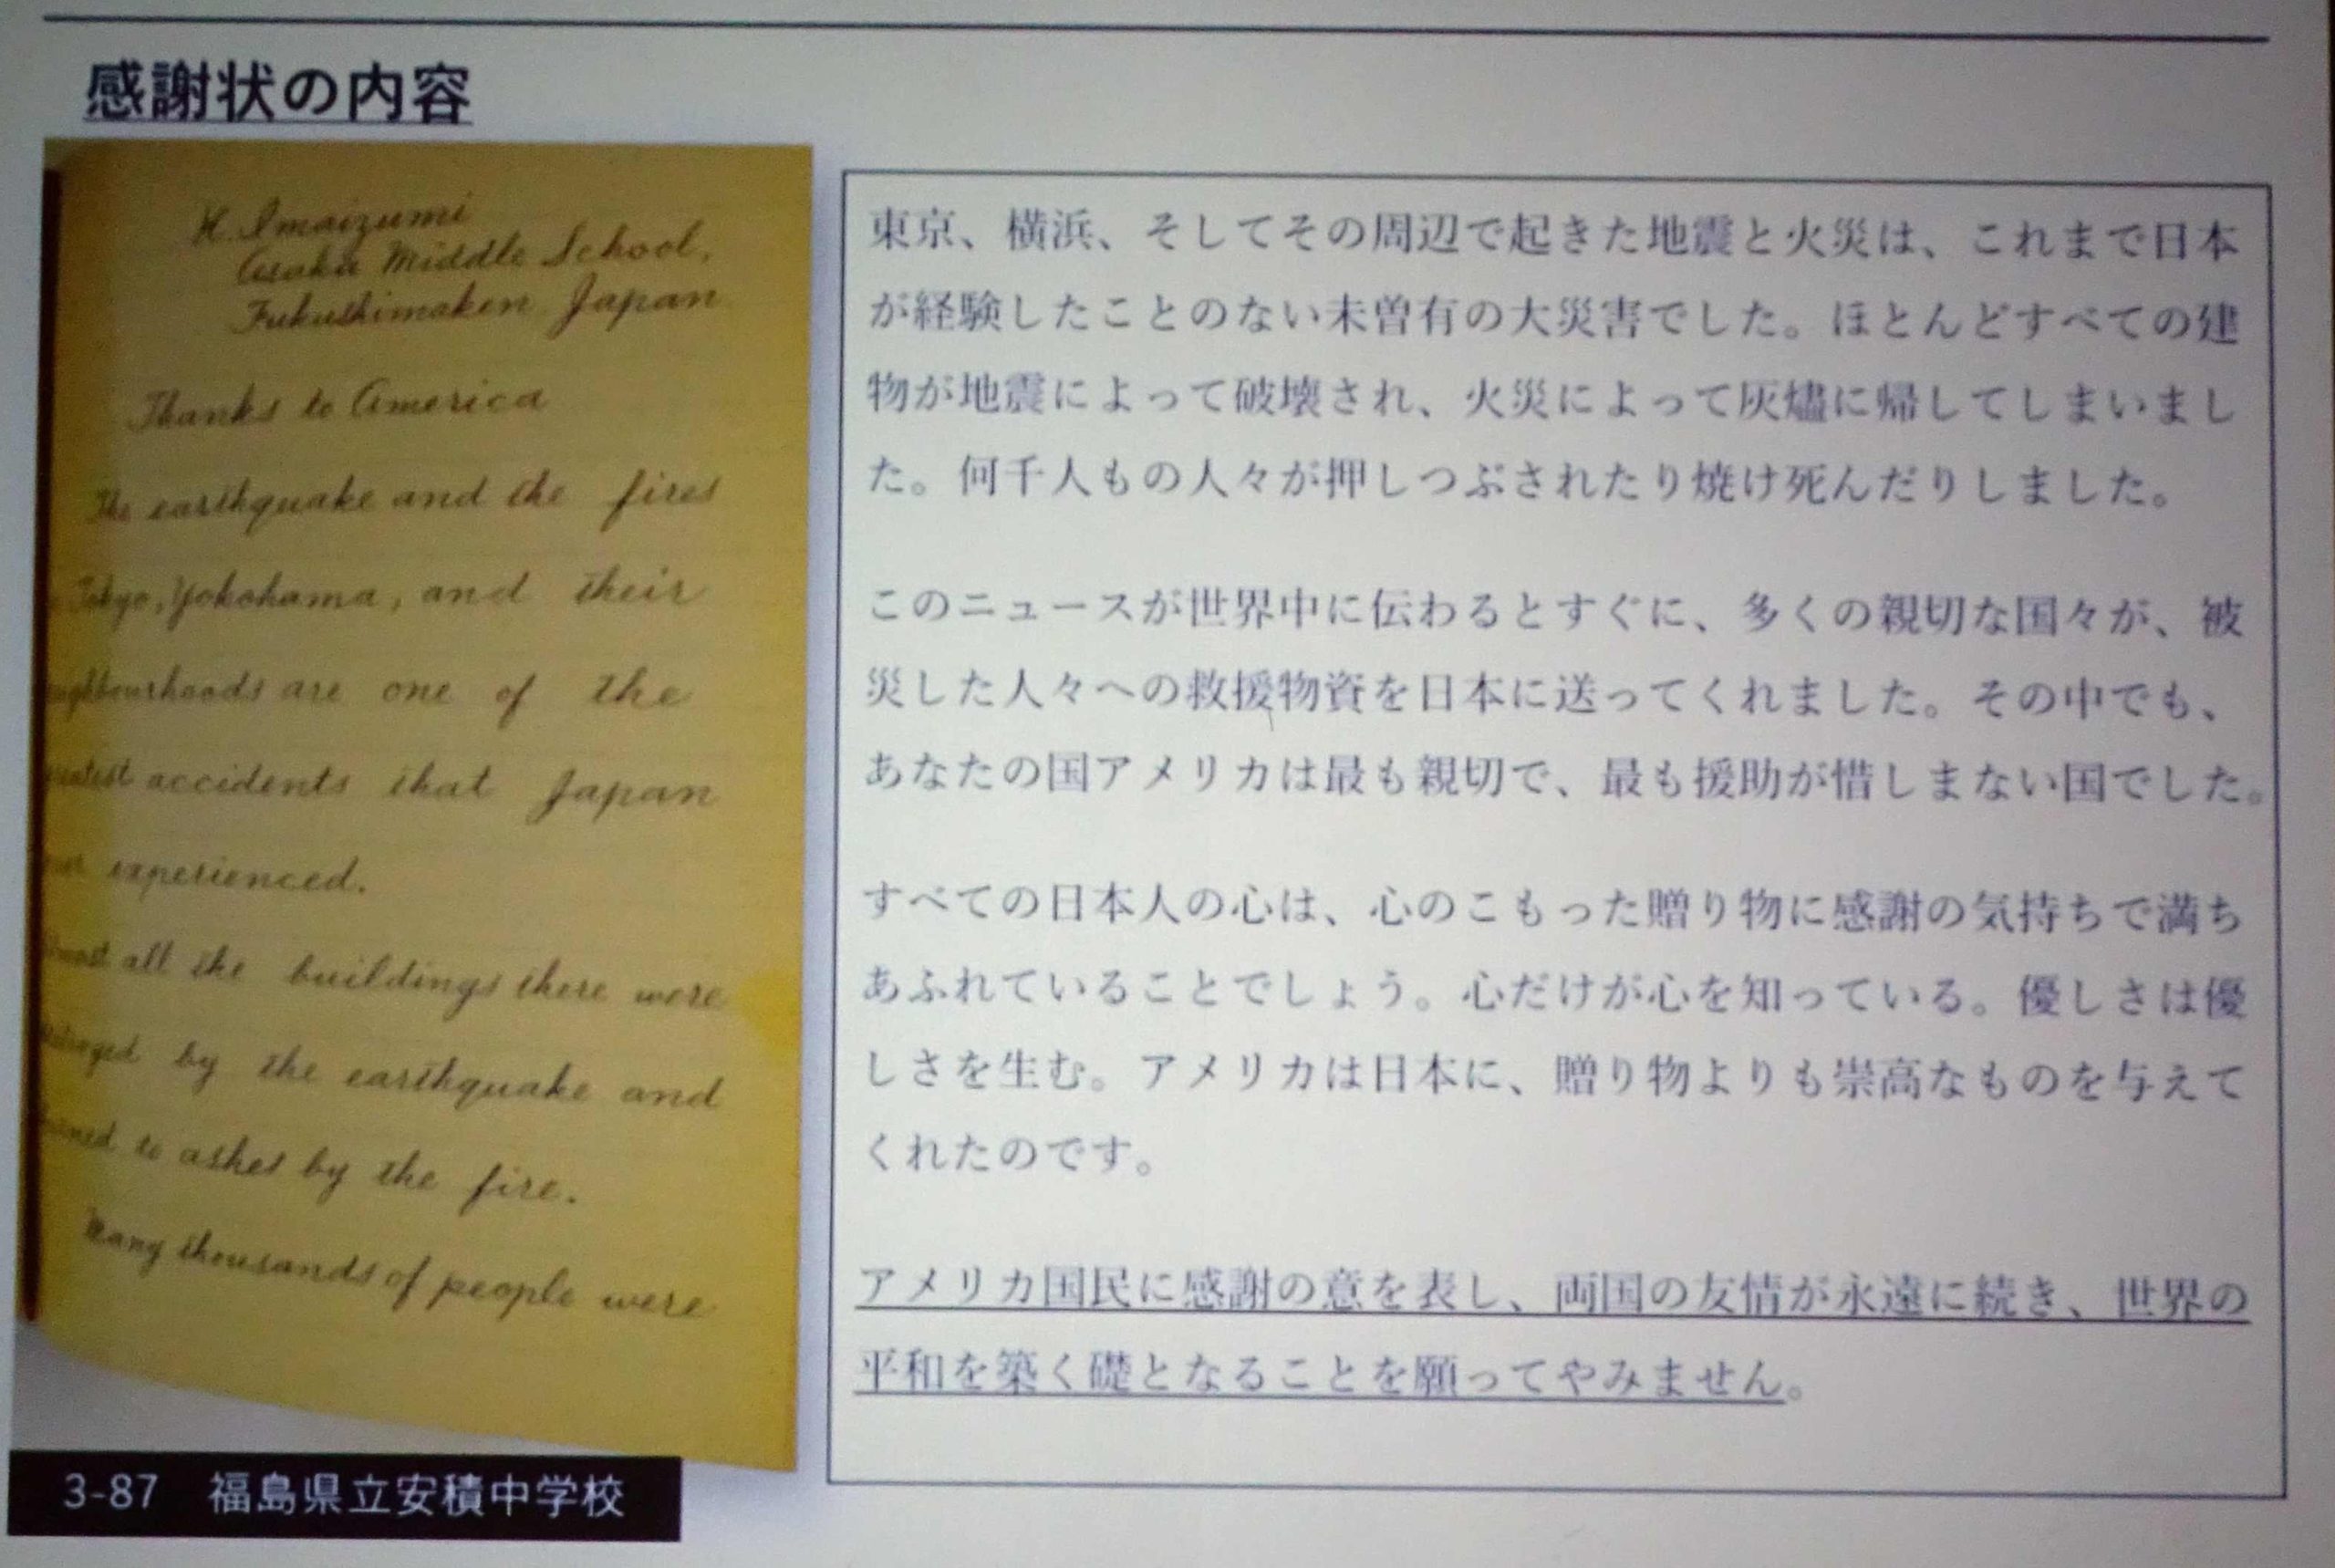 感謝状の内容
H. Imaizumi
Asaka Middle School,
Fukushimaken Japan
Thanks to America
The earthquake and the fires
Tokyo, Yokohama, and their
are one of the
accidents that Japan
experienced.
all the buildings there were
by the earthquake and
to ashes by the fire.
Many thousands of people were
3-87 福島県立安積中学校
東京、横浜、そしてその周辺で起きた地震と火災は、これまで日本
が経験したことのない未曽有の大災害でした。ほとんどすべての建
物が地震によって破壊され、火災によって灰燼に帰してしまいまし
た。何千人もの人々が押しつぶされたり焼け死んだりしました。
このニュースが世界中に伝わるとすぐに、多くの親切な国々が、被
災した人々への救援物資を日本に送ってくれました。その中でも、
あなたの国アメリカは最も親切で、最も援助が惜しまない国でした。
すべての日本人の心は、心のこもった贈り物に感謝の気持ちで満ち
あふれていることでしょう。心だけが心を知っている。優しさは優
しさを生む。アメリカは日本に、贈り物よりも崇高なものを与えて
くれたのです。
アメリカ国民に感謝の意を表し、両国の友情が永遠に続き、世界の
平和を築く礎となることを願ってやみません。